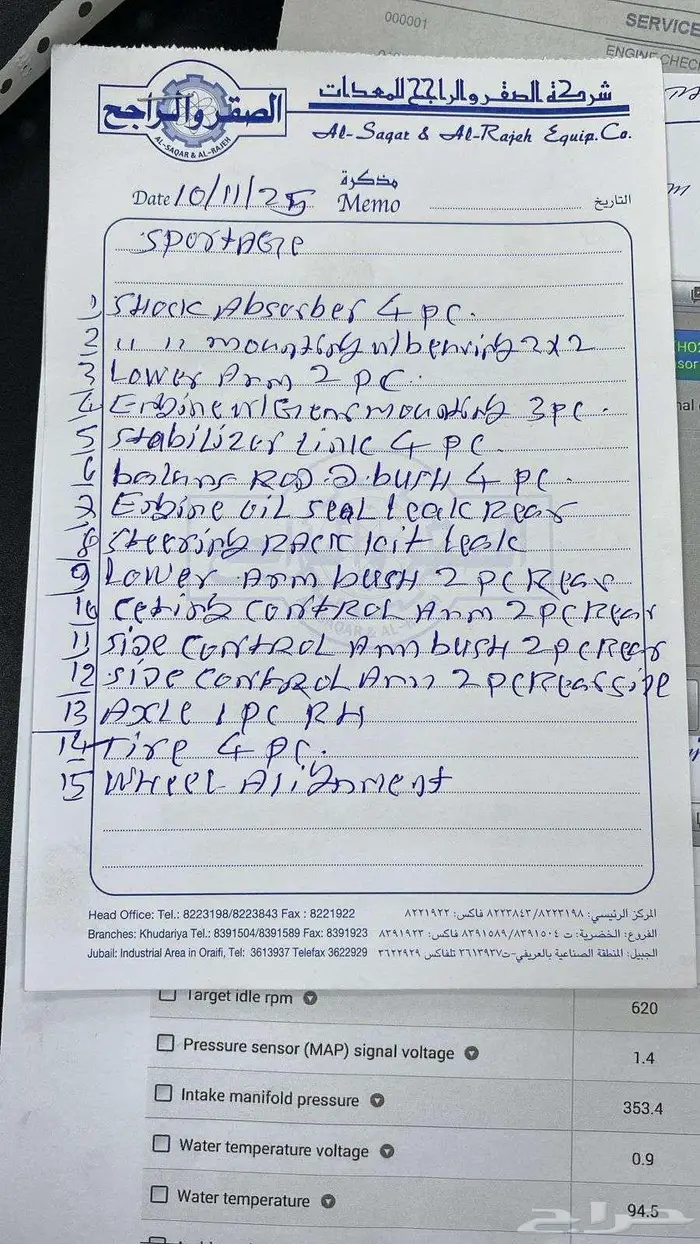 000001
SERVICE
ENGINE CHEC
الصقر والراجح
AL-SAQAR & AL-RAJEH
شركة الصقر والراجح للمعدات
Al-Saqar & Al-Rajeh Equip. Co.
Date 10/11/25
مذكرة
Memo
التاريخ
SPORTAGE
1 Shock Absorber 4 pc.
2 〃 〃 mounting w/bearing 2x2
3 Lower Arm 2 PC.
4 Engine w/Gear mounting 3pc.
5 Stabilizer Link 4 PC.
6 balans ROD bush 4 PC.
7 Engine oil seal leak Rear
8 Steering RACK kit leak
9 Lower Arm bush 2 pc Rear
10 CONTROL Arm 2 pc Rear
11 Side CONTROL Arm bush 2 pc Rear
12 Side CONTROL Arm 2 pc Rear Side
13 AXLE 1 PC RH
14 Tire 4 pc.
15 Wheel Alignment
Head Office: Tel.: 8223198/8223843 Fax : 8221922
المركز الرئيسي: ٨٢٢٣٨٤٣/٨٢٢٣١٩٨ فاكس: ٨٢٢١٩٢٢
Branches: Khudariya Tel.: 8391504/8391589 Fax: 8391923
الفروع: الخضرية: ت ٨٣٩١٥٨٩/٨٣٩١٥٠٤ فاكس: ٨٣٩١٩٢٣
Jubail: Industrial Area in Oraifi, Tel: 3613937 Telefax 3622929
الجبيل: المنطقة الصناعية بالعريفي-ت٣٦١٣٩٣٧ تلفاكس ٣٦٢٢٩٢٩
Target idle rpm 620
Pressure sensor (MAP) signal voltage 1.4
Intake manifold pressure 353.4
Water temperature voltage 0.9
Water temperature 94.5
حراج